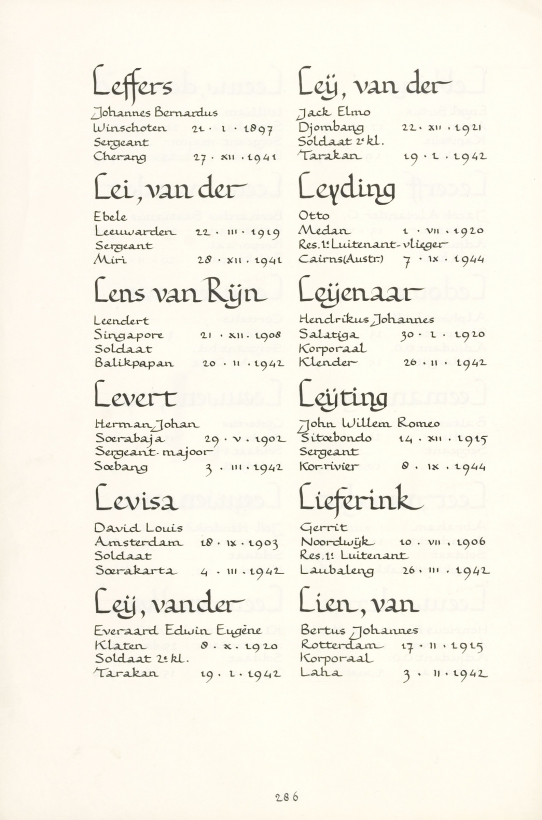 Leffers
Johannes Bernardus
Winschoten 21 · I · 1897
Sergeant
Cherang 27 · XII · 1941
Lei, van der
Ebele
Leeuwarden 22 · III · 1919
Sergeant
Miri 28 · XII · 1941
Lens van Rijn
Leendert
Singapore 21 · XII · 1908
Soldaat
Balikpapan 20 · II · 1942
Levert
Herman Johan
Soerabaja 29 · V · 1902
Sergeant-majoor
Soebang 3 · III · 1942
Levisa
David Louis
Amsterdam 18 · IX · 1903
Soldaat
Soerakarta 4 · III · 1942
Leÿ, van der
Everaard Edwin Eugène
Klaten 8 · X · 1920
Soldaat 2e kl.
Tarakan 19 · I · 1942
Leÿ, van der
Jack Elmo
Djombang 22 · XII · 1921
Soldaat 2e kl.
Tarakan 19 · I · 1942
Leyding
Otto
Medan 1 · VII · 1920
Res. 1e Luitenant-vlieger
Cairns (Austr.) 7 · IX · 1944
Leÿenaar
Hendrikus Johannes
Salatiga 30 · I · 1920
Korporaal
Klender 26 · II · 1942
Leÿting
John Willem Romeo
Sitoebondo 14 · XII · 1915
Sergeant
Kor-rivier 8 · IX · 1944
Lieferink
Gerrit
Noordwÿk 10 · VII · 1906
Res. 1e Luitenant
Laubaleng 26 · III · 1942
Lien, van
Bertus Johannes
Rotterdam 17 · II · 1915
Korporaal
Laha 3 · II · 1942
286